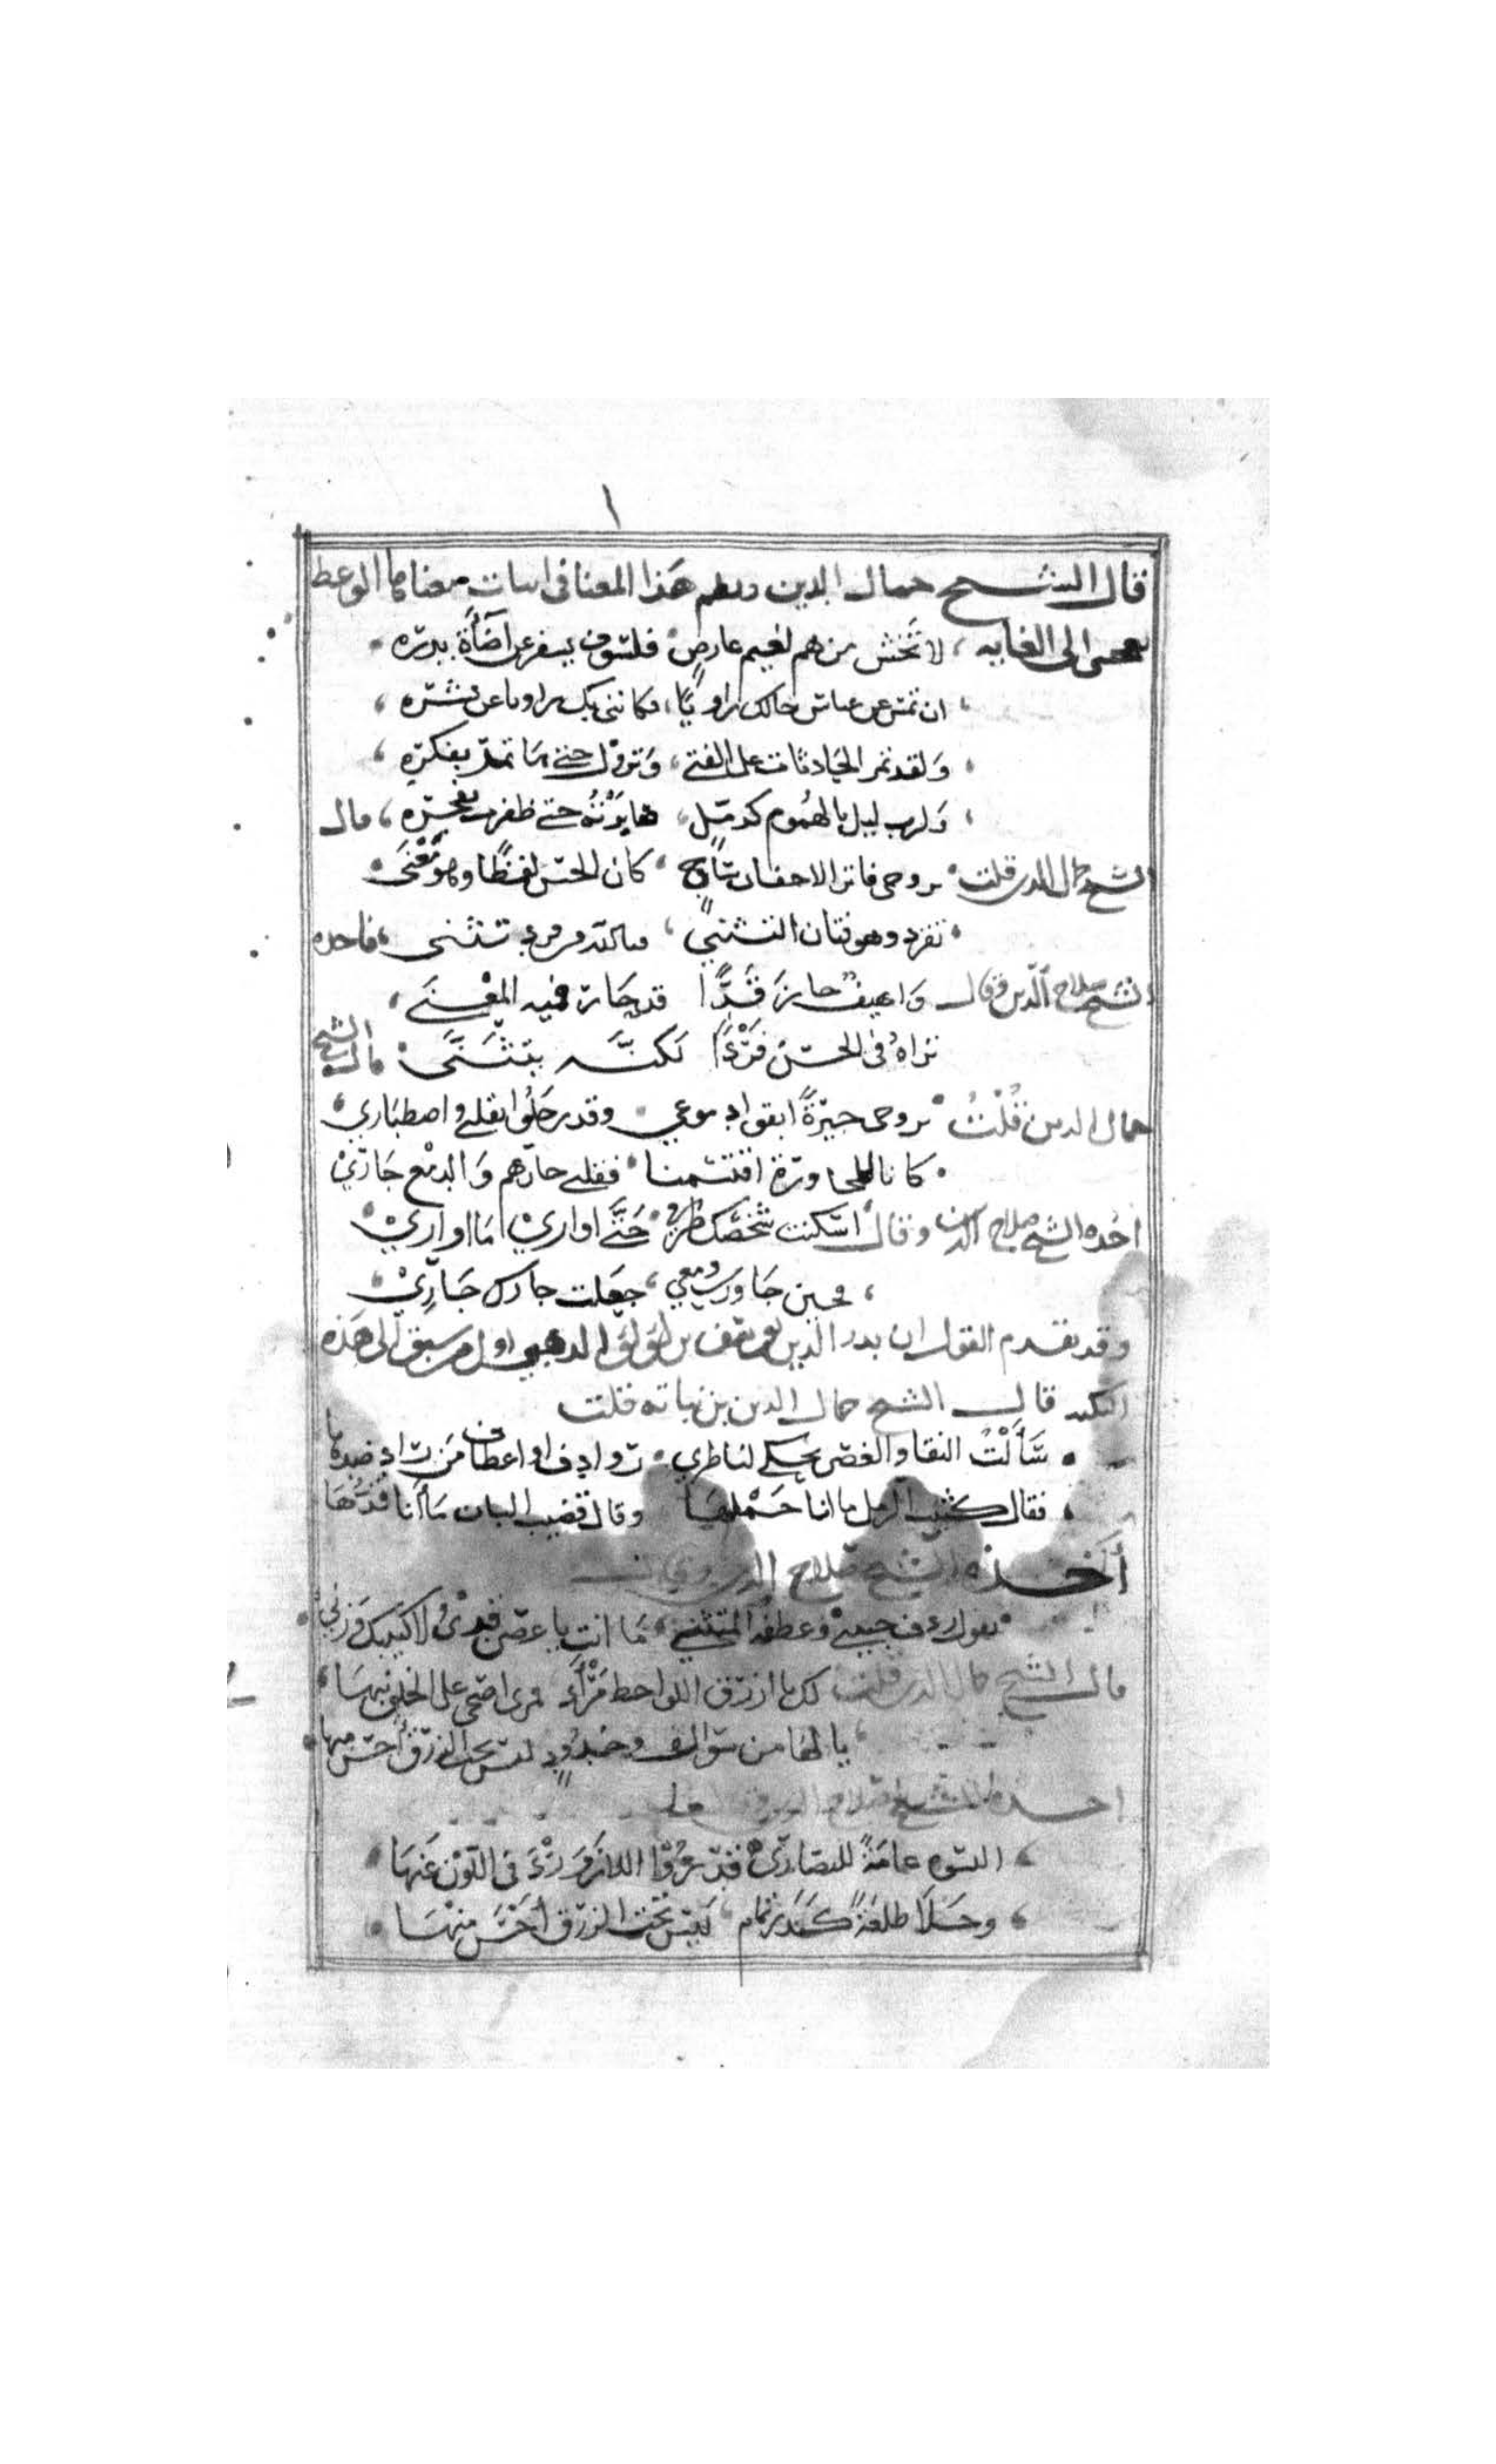 ١
قال الشيخ جمال الدين ونظم هذا المعنا في ابيات معناها الوعظ
الى الغايه لا تخش من هم لغيم عارض فلسوف يسفر عن اضأة بدره
ان تمس عن عباس حالك راويًا فكانني بك راويا عن نشره
ولقد تمر الحادثات على الفتى وتزول حتى ما تمر بفكره
ولرب ليل بالهموم كدمل صابرته حتى ظفرت بفجره قال
الشيخ جمال الدين قلت بروحي فاتر الاجفان ساج كان الحسن لفظًا وهو معنى
تفرد وهو فتان التثني تثنى فاخذه
الشيخ صلاح الدين فقال واهيف حاز قدًّا قد حار فيه المعنى
تراه في الحسن فردًا لكنه يتثنى قال الشيخ
جمال الدين قلت بروحي جيرةً ابقوا دموعي وقد رحلوا بقلبي واصطباري
كانا للمجاورة اقتسمنا فقلبي جارهم والدمع جاري
اخذه الشيخ صلاح الدين وقال اسكنت شخصك طرفي حتى اواري اما اواري
فحين جاورت دمعي جعلت جارك جاري
وقد تقدم القول ان بدر الدين يوسف بن لولو الذهبي اول من سبق الى هذه
النكته قال الشيخ جمال الدين بن نباته قلت
سألت النقا والغصن يحكي لناظري روادف او اعطاف من زاد صدها
فقال كثيب الرمل ما انا حملها وقال قضيب البان ما انا قدها
أخذه الشيخ صلاح الدين
يقول ردف حبيبي وعطفه المتثني ما انت يا غصن قدي ولا كثيبك وزني
قال الشيخ جمال الدين قلت ازرق اللواحظ مرأى على الخلق
يا لها من سوالف وخدود ليس تحت الزرق احسن منها
اخذه الشيخ صلاح الدين
عامة للنصارى في اللون عنها
وحلا طلعةً كبدر تمام ليس تحت الزرق أحسن منها